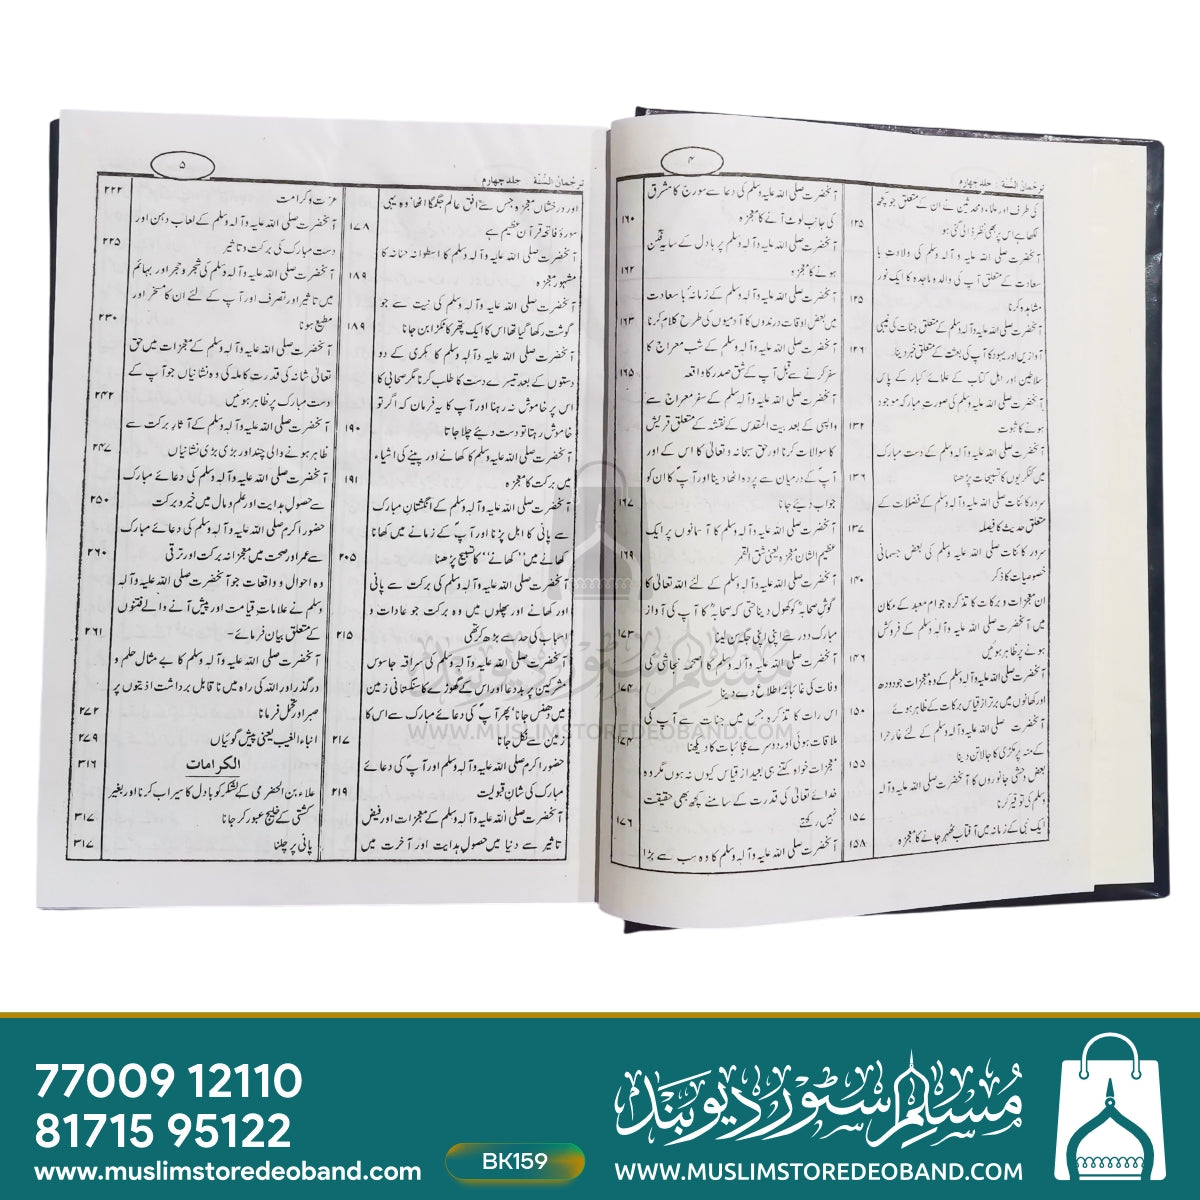 ۴
ترجمان السنۃ : جلد چہارم
کی طرف اور علماء و محدثین نے ان کے متعلق جو کچھ
لکھا ہے اس پر بھی نظر ڈالی گئی ہو ۱۲۵
آنحضرت صلی اللہ علیہ وآلہ وسلم کی ولادت با
سعادت کے متعلق آپ کی والدہ ماجدہ کا ایک نور
مشاہدہ کرنا ۱۲۵
آنحضرت صلی اللہ علیہ وآلہ وسلم کے متعلق جنات کی غیبی
آوازیں اور یہود کا آپ کی بعثت کے متعلق خبر دینا ۱۲۶
سلاطین اور اہل کتاب کے علمائے کبار کے پاس
آنحضرت صلی اللہ علیہ وآلہ وسلم کی صورت مبارکہ موجود
ہونے کا ثبوت ۱۳۲
آنحضرت صلی اللہ علیہ وآلہ وسلم کے دست مبارک
میں کنکریوں کا تسبیحات پڑھنا ۱۳۶
سرور کائنات صلی اللہ علیہ وآلہ وسلم کے فضلات کے
متعلق حدیث کا فیصلہ ۱۳۷
سرور کائنات صلی اللہ علیہ وسلم کی بعض جسمانی
خصوصیات کا ذکر ۱۴۰
ان معجزات و برکات کا تذکرہ جو ام معبد کے مکان
میں آنحضرت صلی اللہ علیہ وآلہ وسلم کے فروکش
ہونے پر ظاہر ہوئیں ۱۴۶
آنحضرت صلی اللہ علیہ وآلہ وسلم کے وہ معجزات جو دودھ
اور کھانوں میں برتر از قیاس برکات کے ظاہر ہوئے ۱۵۰
آنحضرت صلی اللہ علیہ وآلہ وسلم کے لئے غار حرا
کے منہ پر مکڑی کا جالا تن دینا ۱۵۵
بعض وحشی جانوروں کا آنحضرت صلی اللہ علیہ وآلہ
وسلم کی توقیر کرنا ۱۵۷
ایک نبی کے زمانہ میں آفتاب ٹھہر جانے کا معجزہ ۱۵۸
آنحضرت صلی اللہ علیہ وآلہ وسلم کی دعا سے سورج کا مشرق
کی جانب لوٹ آنے کا معجزہ ۱۶۰
آنحضرت صلی اللہ علیہ وآلہ وسلم پر بادل کے سایہ فگن
ہونے کا معجزہ ۱۶۲
آنحضرت صلی اللہ علیہ وآلہ وسلم کے زمانہ با سعادت
میں بعض اوقات درندوں کا آدمیوں کی طرح کلام کرنا ۱۶۳
آنحضرت صلی اللہ علیہ وآلہ وسلم کے شب معراج کا
سفر کرنے سے قبل آپ کے شق صدر کا واقعہ ۱۶۵
آنحضرت صلی اللہ علیہ وآلہ وسلم کے سفر معراج سے
واپسی کے بعد بیت المقدس کے نقشہ کے متعلق قریش
کا سوالات کرنا اور حق سبحانہ وتعالیٰ کا اس کے اور
آپ کے درمیان سے پردہ اٹھا دینا اور آپ کا ان کو
جواب دیئے جانا ۱۶۷
آنحضرت صلی اللہ علیہ وآلہ وسلم کا آسمانوں پر ایک
عظیم الشان معجزہ یعنی شق القمر ۱۶۹
آنحضرت صلی اللہ علیہ وآلہ وسلم کے لئے اللہ تعالیٰ کا
گوش صحابہؓ کو کھول دینا حتی کہ صحابہؓ کو آپ کی آواز
مبارک دور سے اپنی اپنی جگہ سن لینا ۱۷۳
آنحضرت صلی اللہ علیہ وآلہ وسلم کا اصحمہ نجاشی کی
وفات کی غائبانہ اطلاع دے دینا ۱۷۴
اس رات کا تذکرہ جس میں جنات سے آپ کی
ملاقات ہوئی اور دوسرے عجائبات کا دیکھنا ۱۷۴
معجزات خواہ کتنے ہی بعید از قیاس کیوں نہ ہوں مگر وہ
خدائے تعالیٰ کی قدرت کے سامنے کچھ بھی حقیقت
نہیں رکھتے ۱۷۶
آنحضرت صلی اللہ علیہ وآلہ وسلم کا وہ سب سے بڑا
۵
ترجمان السنۃ : جلد چہارم
اور درخشاں معجزہ جس سے افق عالم جگمگا اٹھا وہ یہی
سورۂ فاتحہ قرآن عظیم ہے ۱۷۸
آنحضرت صلی اللہ علیہ وآلہ وسلم کا اسطوانہ حنانہ کا
مشہور معجزہ ۱۸۹
آنحضرت صلی اللہ علیہ وآلہ وسلم کی نیت سے جو
گوشت رکھا گیا تھا اس کا ایک پتھر کا ٹکڑا بن جانا ۱۸۹
آنحضرت صلی اللہ علیہ وآلہ وسلم کا بکری کے دو
دستوں کے بعد تیسرے دست کا طلب کرنا مگر صحابی کا
اس پر خاموش نہ رہنا اور آپ کا یہ فرمان کہ اگر تو
خاموش رہتا تو دست دیئے چلا جاتا ۱۹۰
آنحضرت صلی اللہ علیہ وآلہ وسلم کا کھانے اور پینے کی اشیاء
میں برکت کا معجزہ ۱۹۱
آنحضرت صلی اللہ علیہ وآلہ وسلم کے انگشتان مبارک
سے پانی کا ابل پڑنا اور آپؐ کے زمانے میں کھانا
کھانے میں ’’کھانے‘‘ کا تسبیح پڑھنا ۲۰۵
آنحضرت صلی اللہ علیہ وآلہ وسلم کی برکت سے پانی
اور کھانے اور پھلوں میں وہ برکت جو عادات و
اسباب کی حد سے بڑھ کر تھی ۲۱۵
آنحضرت صلی اللہ علیہ وآلہ وسلم کی سراقہ جاسوس
مشرکین پر بد دعا اور اس کے گھوڑے کا سنگستانی زمین
میں دھنس جانا پھر آپؐ کی دعائے مبارک سے اس کا
زمین سے نکل جانا ۲۱۷
حضور اکرم صلی اللہ علیہ وآلہ وسلم اور آپؐ کی دعائے
مبارک کی شان قبولیت ۲۱۹
آنحضرت صلی اللہ علیہ وآلہ وسلم کے معجزات اور فیض
تاثیر سے دنیا میں حصول ہدایت اور آخرت میں
عزت و کرامت ۲۲۲
آنحضرت صلی اللہ علیہ وآلہ وسلم کے لعاب دہن اور
دست مبارک کی برکت و تاثیر ۲۲۵
آنحضرت صلی اللہ علیہ وآلہ وسلم کی شجر و حجر اور بہائم
میں تاثیر اور تصرف اور آپ کے لئے ان کا مسخر اور
مطیع ہونا ۲۳۰
آنحضرت صلی اللہ علیہ وآلہ وسلم کے معجزات میں حق
تعالیٰ شانہ کی قدرت کاملہ کی وہ نشانیاں جو آپ کے
دست مبارک پر ظاہر ہوئیں ۲۴۲
آنحضرت صلی اللہ علیہ وآلہ وسلم کے آثار برکت سے
ظاہر ہونے والی چند اور بڑی بڑی نشانیاں ۲۴۷
آنحضرت صلی اللہ علیہ وآلہ وسلم کی دعائے مبارک
سے حصول ہدایت اور علم و مال میں خیر و برکت ۲۵۰
حضور اکرم صلی اللہ علیہ وآلہ وسلم کی دعائے مبارک
سے عمر اور صحت میں معجزانہ برکت اور ترقی ۲۶۰
وہ احوال و واقعات جو آنحضرت صلی اللہ علیہ وآلہ
وسلم نے علامات قیامت اور پیش آنے والے فتنوں
کے متعلق بیان فرمائے۔ ۲۶۱
آنحضرت صلی اللہ علیہ وآلہ وسلم کا بے مثال حلم و
درگذر اور اللہ کی راہ میں ناقابل برداشت اذیتوں پر
صبر اور تحمل فرمانا ۲۷۲
انباء الغیب یعنی پیش گوئیاں ۲۷۹
الکرامات ۳۱۶
علاء بن الحضرمی کے لشکر کو بادل کا سیراب کرنا اور بغیر
کشتی کے خلیج عبور کر جانا ۳۱۷
پانی پر چلنا ۳۱۷
مسلم سٹور دیوبند
WWW.MUSLIMSTOREDEOBAND.COM
77009 12110
81715 95122
www.muslimstoredeoband.com
BK159
مسلم سٹور دیوبند
WWW.MUSLIMSTOREDEOBAND.COM